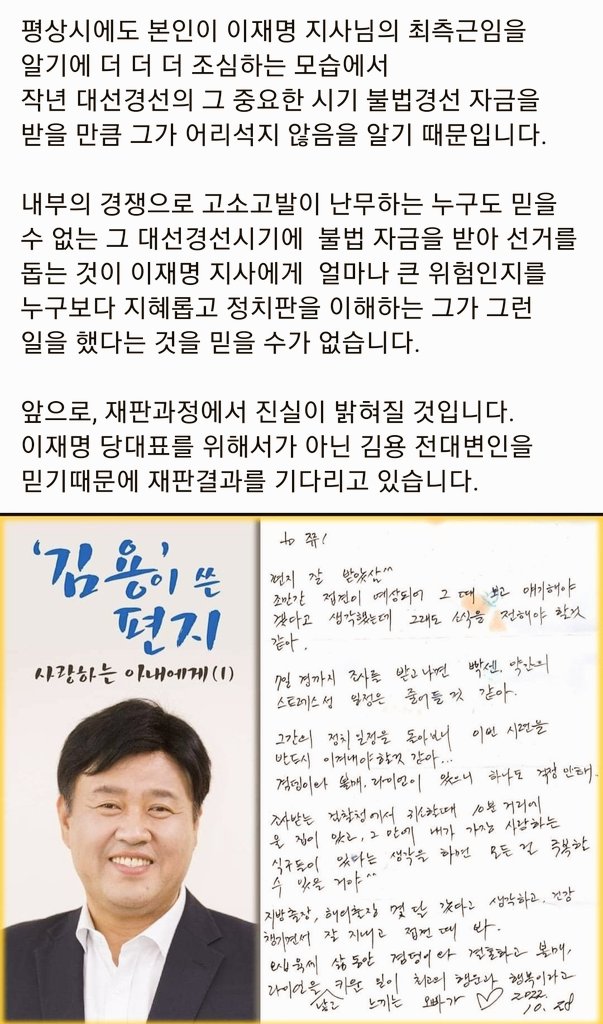 평상시에도 본인이 이재명 지사님의 최측근임을
알기에 더 더 더 조심하는 모습에서
작년 대선경선의 그 중요한 시기 불법경선 자금을
받을 만큼 그가 어리석지 않음을 알기 때문입니다.
내부의 경쟁으로 고소고발이 난무하는 누구도 믿을
수 없는 그 대선경선시기에 불법 자금을 받아 선거를
돕는 것이 이재명 지사에게 얼마나 큰 위험인지를
누구보다 지혜롭고 정치판을 이해하는 그가 그런
일을 했다는 것을 믿을 수가 없습니다.
앞으로, 재판과정에서 진실이 밝혀질 것입니다.
이재명 당대표를 위해서가 아닌 김용 전대변인을
믿기때문에 재판결과를 기다리고 있습니다.
'김용'이 쓴
편지
사랑하는 아내에게(1)
to 쮸!
편지 잘 받았삼^^
조만간 접견이 예상되어 그 때 보고 얘기해야
겠다고 생각했는데 그래도 소식을 전해야 할것
같아.
7일 경까지 조사를 받고나면 빡센, 약간의
스트레스성 일정은 줄어들 것 같아.
그간의 정치일정을 돌아보니 이번 시련을
반드시 이겨내야 할것 같아...
검덩이와 볼매, 라이언이 있으니 하나도 걱정 안돼.
조사받는 검찰청에서 직선할때 10분 거리에
울 집이 있고, 그 안에 내가 가장 사랑하는
식구들이 있다는 생각을 하면 모든 걸 극복할
수 있을 거야^^
지방출장, 해외출장 몇 달 갔다고 생각하고, 건강
챙기면서 잘 지내고 접견 때 봐.
오십육세 삶 동안 검덩이와 결혼하고 볼매,
라이언을 낳고 키운 일이 최고의 행운과 행복이라고
느끼는 오빠가 ♡ 2022.
10. 28